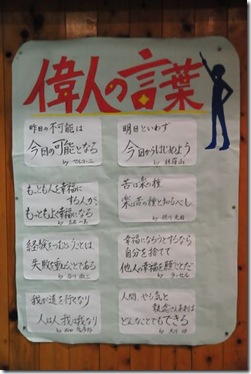 偉人の言葉
昨日の不可能は
今日の可能となる
by マルコーニ
明日といわず
今日からはじめよう
by 林羅山
もっとも人を幸福に
する人が、
もっともよく幸福になる
by
苦は楽の種
楽は苦の種と知るべし
by 徳川光圀
経験をつむということは
失敗を重ねることである
by
幸福になろうとするなら
自分を捨てて
他人の幸福を願うことだ
by ラッセル
我が道を行くなり
人は人 我は我なり
by
人間、やる気と
執念さえあれば
どんなことでもできる
by